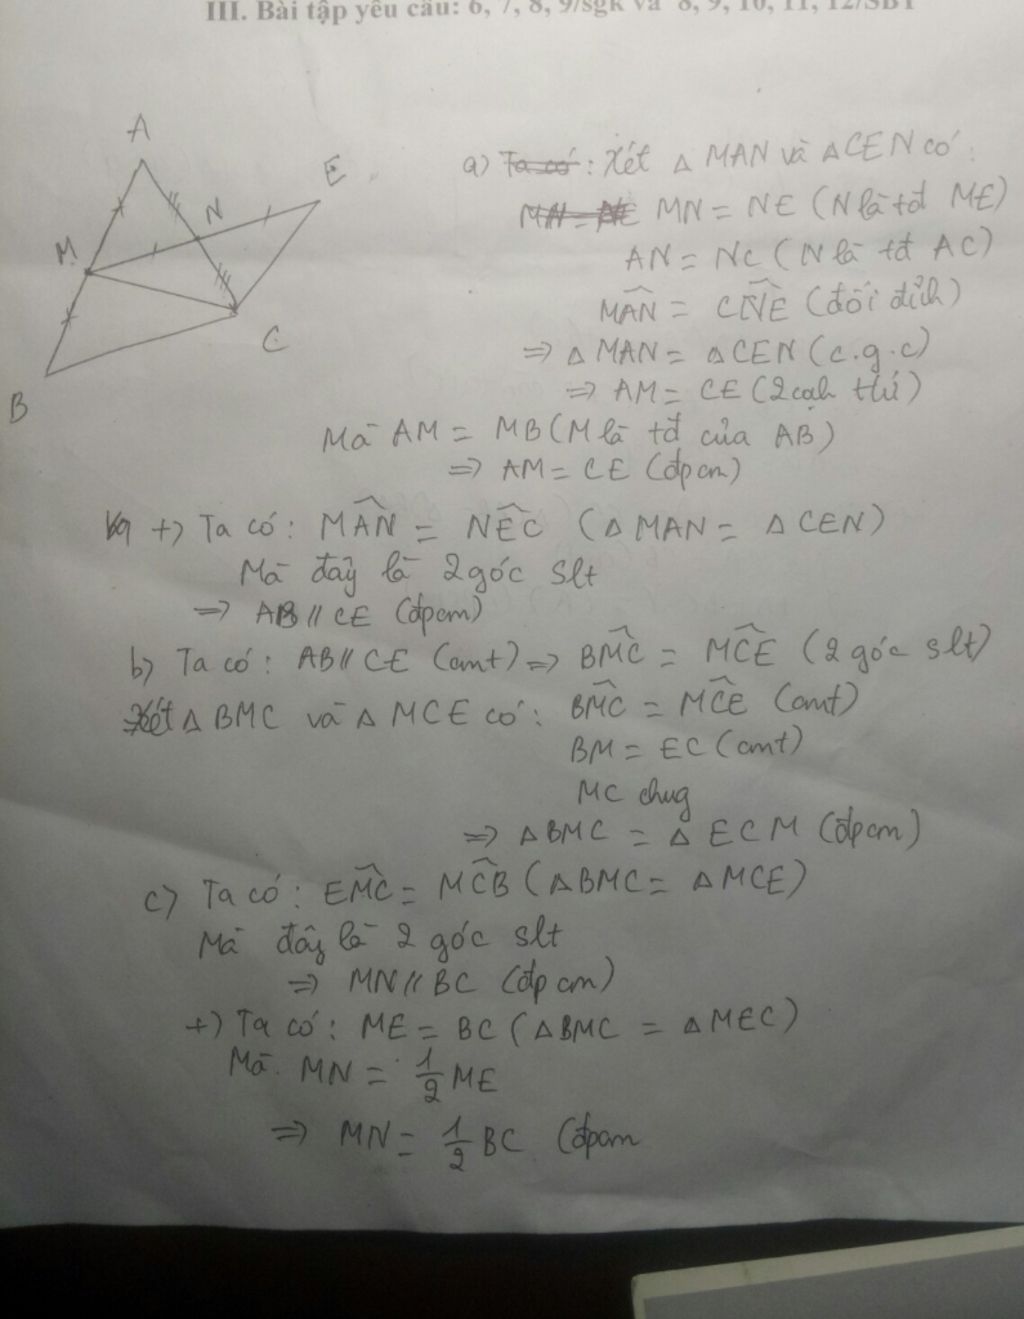 III. Bài tập yêu cầu: 6, 7, 8, 9/sgk và 8, 9, 10, 11, 12/SBT
A
E
N
M
C
B
a) Ta có: Xét △ MAN và △CEN có:
MN = NE MN = NE (N là tđ ME)
AN = NC (N là tđ AC)
MAN = CNE (đối đỉnh)
=> △ MAN = △CEN (c.g.c)
=> AM = CE (2 cạh tứ)
Mà AM = MB (M là tđ của AB)
=> AM = CE (đpcm)
+) Ta có: MAN = NEC (△ MAN = △ CEN)
Mà đây là 2 góc slt
=> AB // CE (đpcm)
b) Ta có: AB // CE (cmt) => BMC = MCE (2 góc slt)
Xét △ BMC và △ MCE có: BMC = MCE (cmt)
BM = EC (cmt)
MC chug
=> △ BMC = △ ECM (đpcm)
c) Ta có: EMC = MCB (△BMC = △MCE)
Mà đây là 2 góc slt
=> MN // BC (đpcm)
+) Ta có: ME = BC (△BMC = △MEC)
Mà MN = 1/2 ME
=> MN = 1/2 BC (đpcm